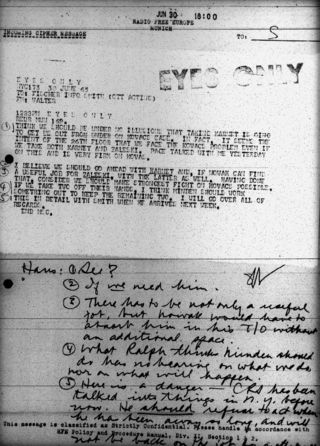 JUN 30 18:00
RADIO FREE EUROPE
MUNICH
INCOMING CIPHER MESSAGE
TO: S
EYES ONLY
EYES ONLY
30 JUNE 65
TO: FISCHER INFO SMITH (OTT ACTING)
FM: WALTER
EYES ONLY
(1) THINK WE SHOULD BE UNDER NO ILLUSION THAT TAKING HARNEY IS GING
TO GET US OUT FROM UNDER ON KOVACS CASE. IN FACT, IT SEEMS THE
26TH FLOOR THAT WE FACE THE KOVACS PROBLEM EVEN IF
WE TAKE BOTH HARNEY AND ZALESKI. PAGE TALKED WITH ME YESTERDAY
ON THIS AND IS VERY FIRM ON NOVAK.
I BELIEVE WE SHOULD GO AHEAD WITH HARNEY AND, IF NOWAK CAN FIND
A USEFUL JOB FOR ZALESKI, WITH THE LATTER AS WELL. HAVING DONE
THAT, CONSIDER WE SHOULD MAKE STRONGEST FIGHT ON KOVACS POSSIBLE.
IF WE TAKE TWO OFF THEIR HANDS, I THINK HUNDEN SHOULD WORK
SOMETHING OUT TO KEEP THE REMAINING TWO. I WILL GO OVER ALL OF
THIS IN DETAIL WITH SMITH WHEN HE ARRIVES NEXT WEEK.
REGARDS.
END MSG.
Hans: ① Sec?
② If we need him.
③ There has to be not only a useful
job, but Nowak would have to
absorb him in his T/O without
an additional space.
④ What Ralph thinks Hunden should
do has no bearing on what we do,
nor on what will happen.
⑤ Here is a danger — CRS has been
talked into things in N.Y. before
now. He should refuse to act when
he has been away so long, and will
This message is classified as Strictly Confidential. Please handle in accordance with
RFE Policy and Procedure Manual, Div. II, Section 1 & 2.
not be